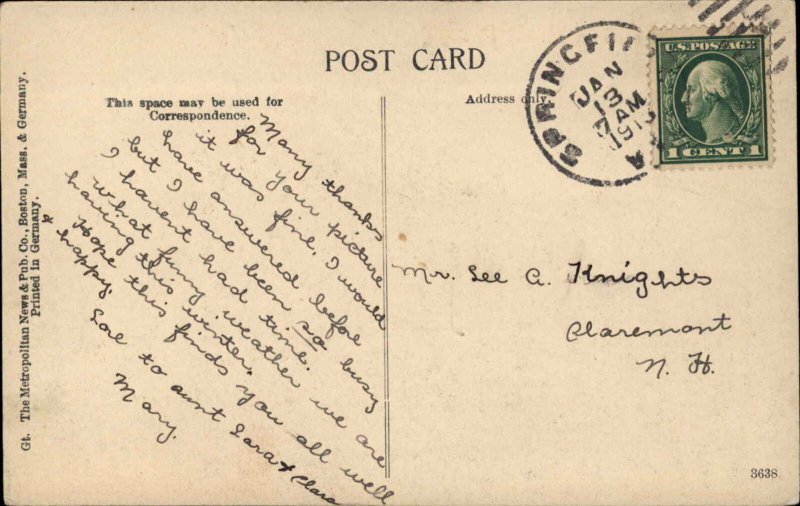 POST CARD
This space may be used for
Correspondence.
Address only.
SPRINGFI
JAN
13
7 AM
191
U.S. POSTAGE
1 CENT 1
Many thanks
for your picture
it was fine. I would
have answered before
but I have been so busy
I havent had time.
What funny weather we are
having this winter.
Hope this finds you all well
& happy.
Love to aunt Sara & Clara
Mary.
Mr. Lee A. Knights
Claremont
N. H.
Gt. The Metropolitan News & Pub. Co., Boston, Mass. & Germany.
Printed in Germany.
3638